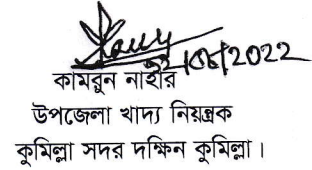 কামরুন নাহার
উপজেলা খাদ্য নিয়ন্ত্রক
কুমিল্লা সদর দক্ষিন কুমিল্লা।